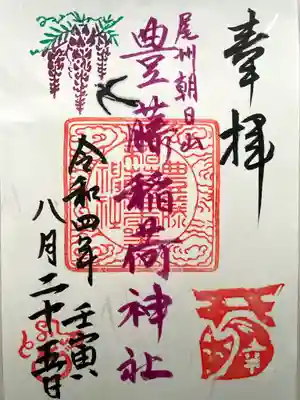 奉拝
尾州朝日山
豊藤稲荷神社
令和四年
壬寅
八月二十五日